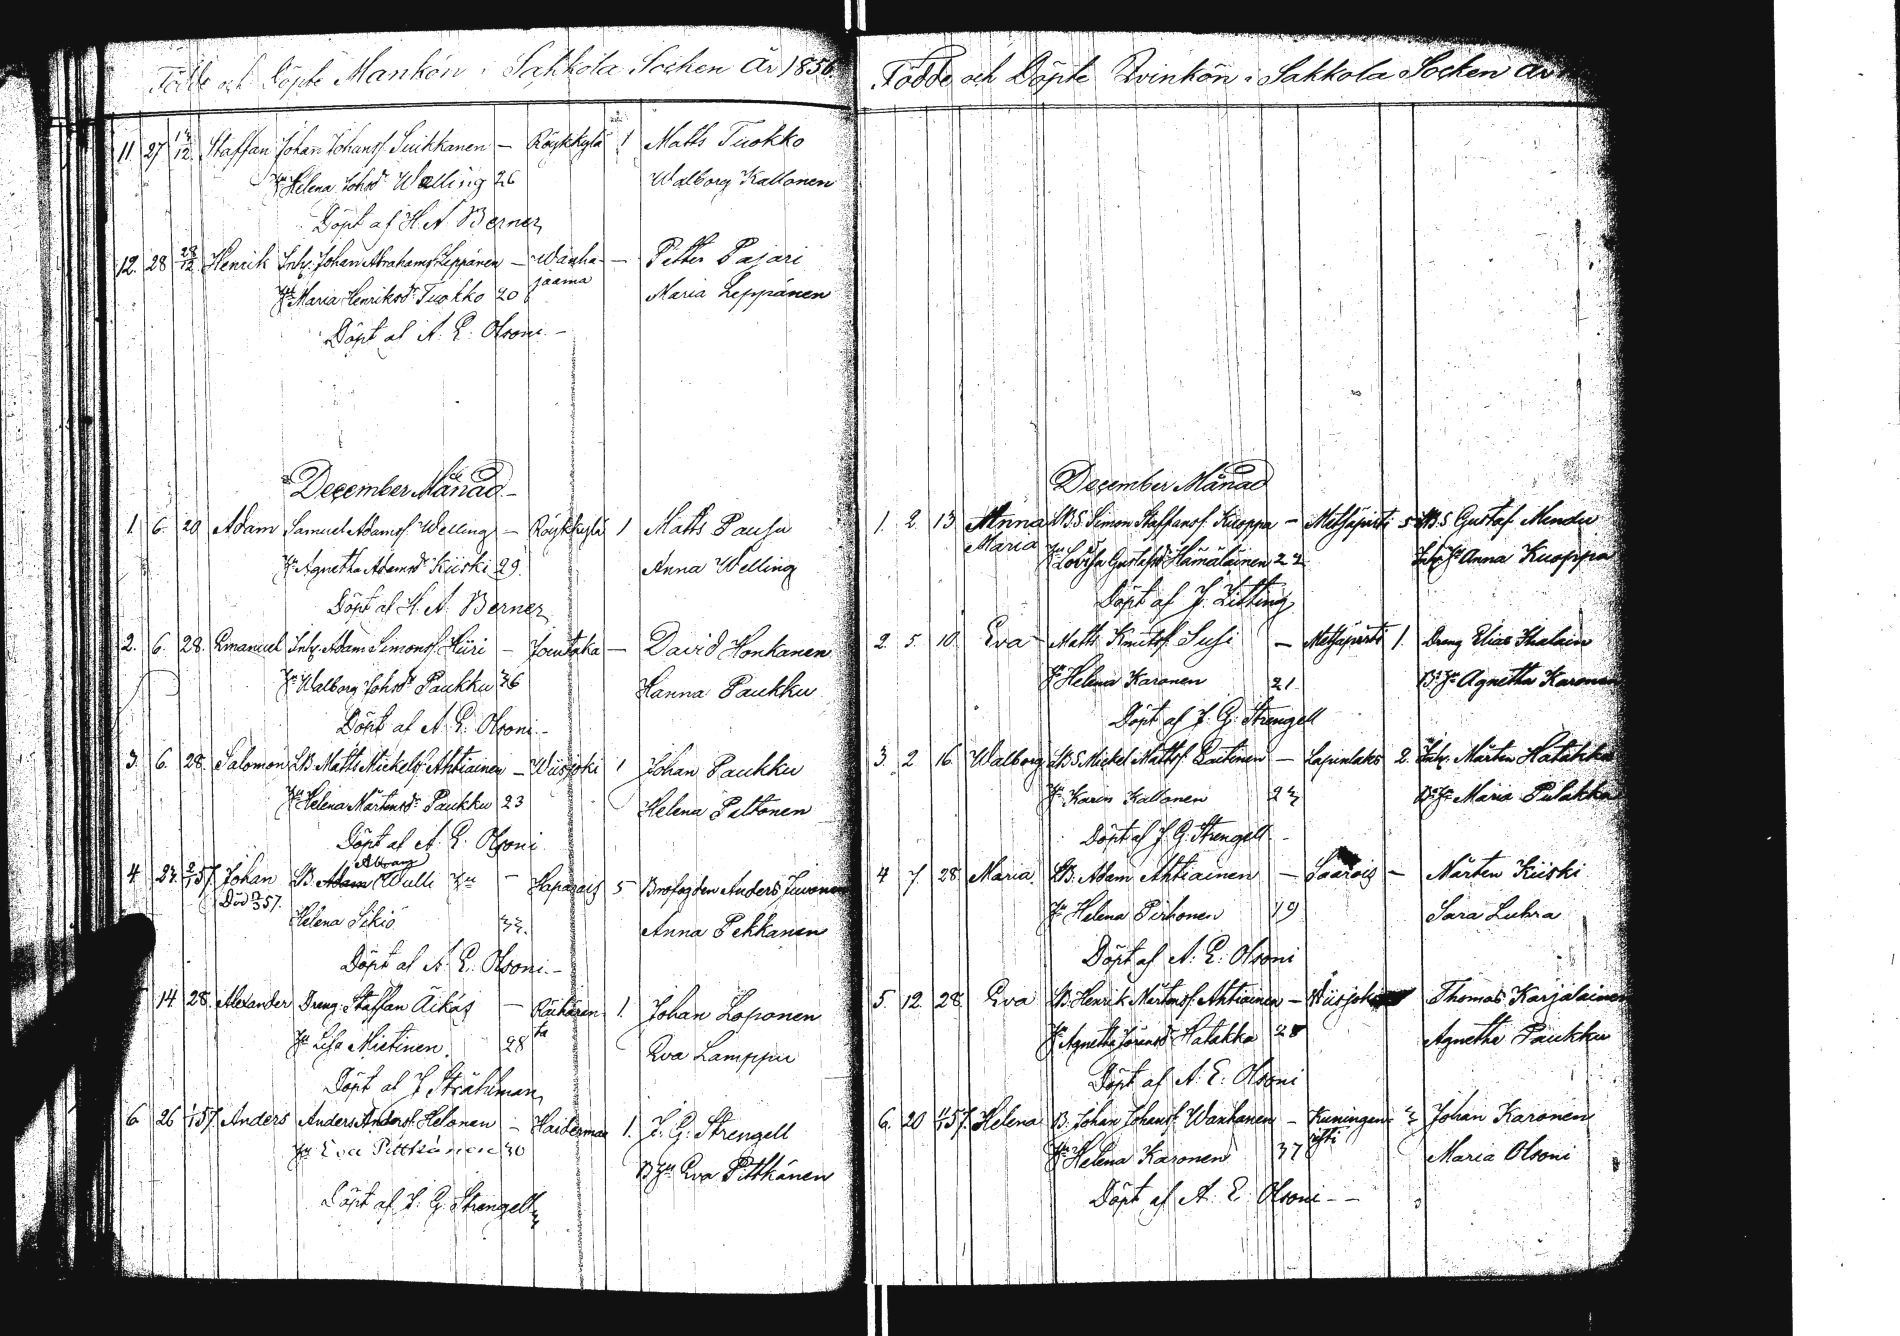 Födde och Döpte Mankön i Sakkola Socken År 1856.
11 27 14/12 Staffan Johan Johansf. Suikkanen — Röykkylä 1 Matts Tuokko
Hu Helena Johsdr Welling 26 Walborg Kallonen
Döpt af H. A. Berner
12. 28 28/12 Henrik Inh. Johan Abrahamsf. Leppänen — Wanha- — Petter Pajari
jaama
Hu Maria Henriksdr Tuokko 20 Maria Leppänen
Döpt af A. E. Olsoni —
December Månad —
1. 6. 20 Adam Samuel Adamsf. Welling — Röykkylä 1 Matts Pausu
Hu Agnetha Adamsdr Kiiski 29. Anna Welling
Döpt af H. A. Berner
2. 6. 28. Emanuel Inh. Adam Simonsf. Hiiri — Joutaka — David Honkanen
Hu Walborg Johsdr Paukku 36 Hanna Paukku
Döpt af A. E. Olsoni. —
3. 6. 28. Salomon LB. Matts Mickelsf. Ahtiainen — Wiisjoki 1 Johan Paukku
Hu Helena Mårtensdr Paukku 23 Helena Peltonen
Döpt af A. E. Olsoni
Abram
4. 23. 2/1 57. Johan LB. Adam Wulli Hu — Haparais 5 Brofogden Anders Juvonen
Död
Helena Sikiö 33. Anna Pekkanen
Döpt af A. E. Olsoni. —
14 28. Alexander Dreng Staffan Äikäs — Räihären- 1. Johan Loponen
ta
Hu Lisa Mietinen. 28 Eva Lamppu
Döpt af J. Stråhlman
6 26 1/1 57. Anders Anders Andersf. Helonen — Haiderman 1. J. G. Strengell
Hu Eva Pitkänen 30 B. Hu Eva Pitkänen
Döpt af J. G. Strengell
Födde och Döpte Qvinkön i Sakkola Socken År
December Månad
1. 2. 13 Anna LB.S. Simon Staffansf. Kuoppa — Metsäpirti 5 LB.S Gustaf Mendu
Maria Hu Lovisa Gustafsdr Hämäläinen 22 Inh. Hu Anna Kuoppa
Döpt af J. Zitting
2. 5. 10. Eva — Matts Knutsf. Susi — Metsäpirti 1. Dreng Elias Hualain
Hu Helena Karonen 21. B. Hu Agnetha Karonen
Döpt af J. G. Strengell
3. 2 16. Walborg LB.S Mickel Mattsf. Rautinen — Lapinlaks 2. Inh. Mårten Hatakka
Hu Karin Kallonen 23 B. Hu Maria Pulakka
Döpt af J. G. Strengell —
4 7. 28. Maria. LB. Adam Ahtiainen — Saarois — Mårten Kiiski
Hu Helena Pirhonen 19 Sara Luhra
Döpt af A. E. Olsoni
5. 12. 28. Eva LB. Henrik Mårtensf. Ahtiainen — Wiisjoki Thomas Karjalainen
Hu Agnetha Göransdr Hatakka 28 Agnetha Paukku
Döpt af A. E. Olsoni
6. 20 57. Helena B. Johan Johansf. Wankanen — Kuningan- 3 Johan Karonen
risti
Hu Helena Karonen 37 Maria Olsoni
Döpt af A. E. Olsoni — —